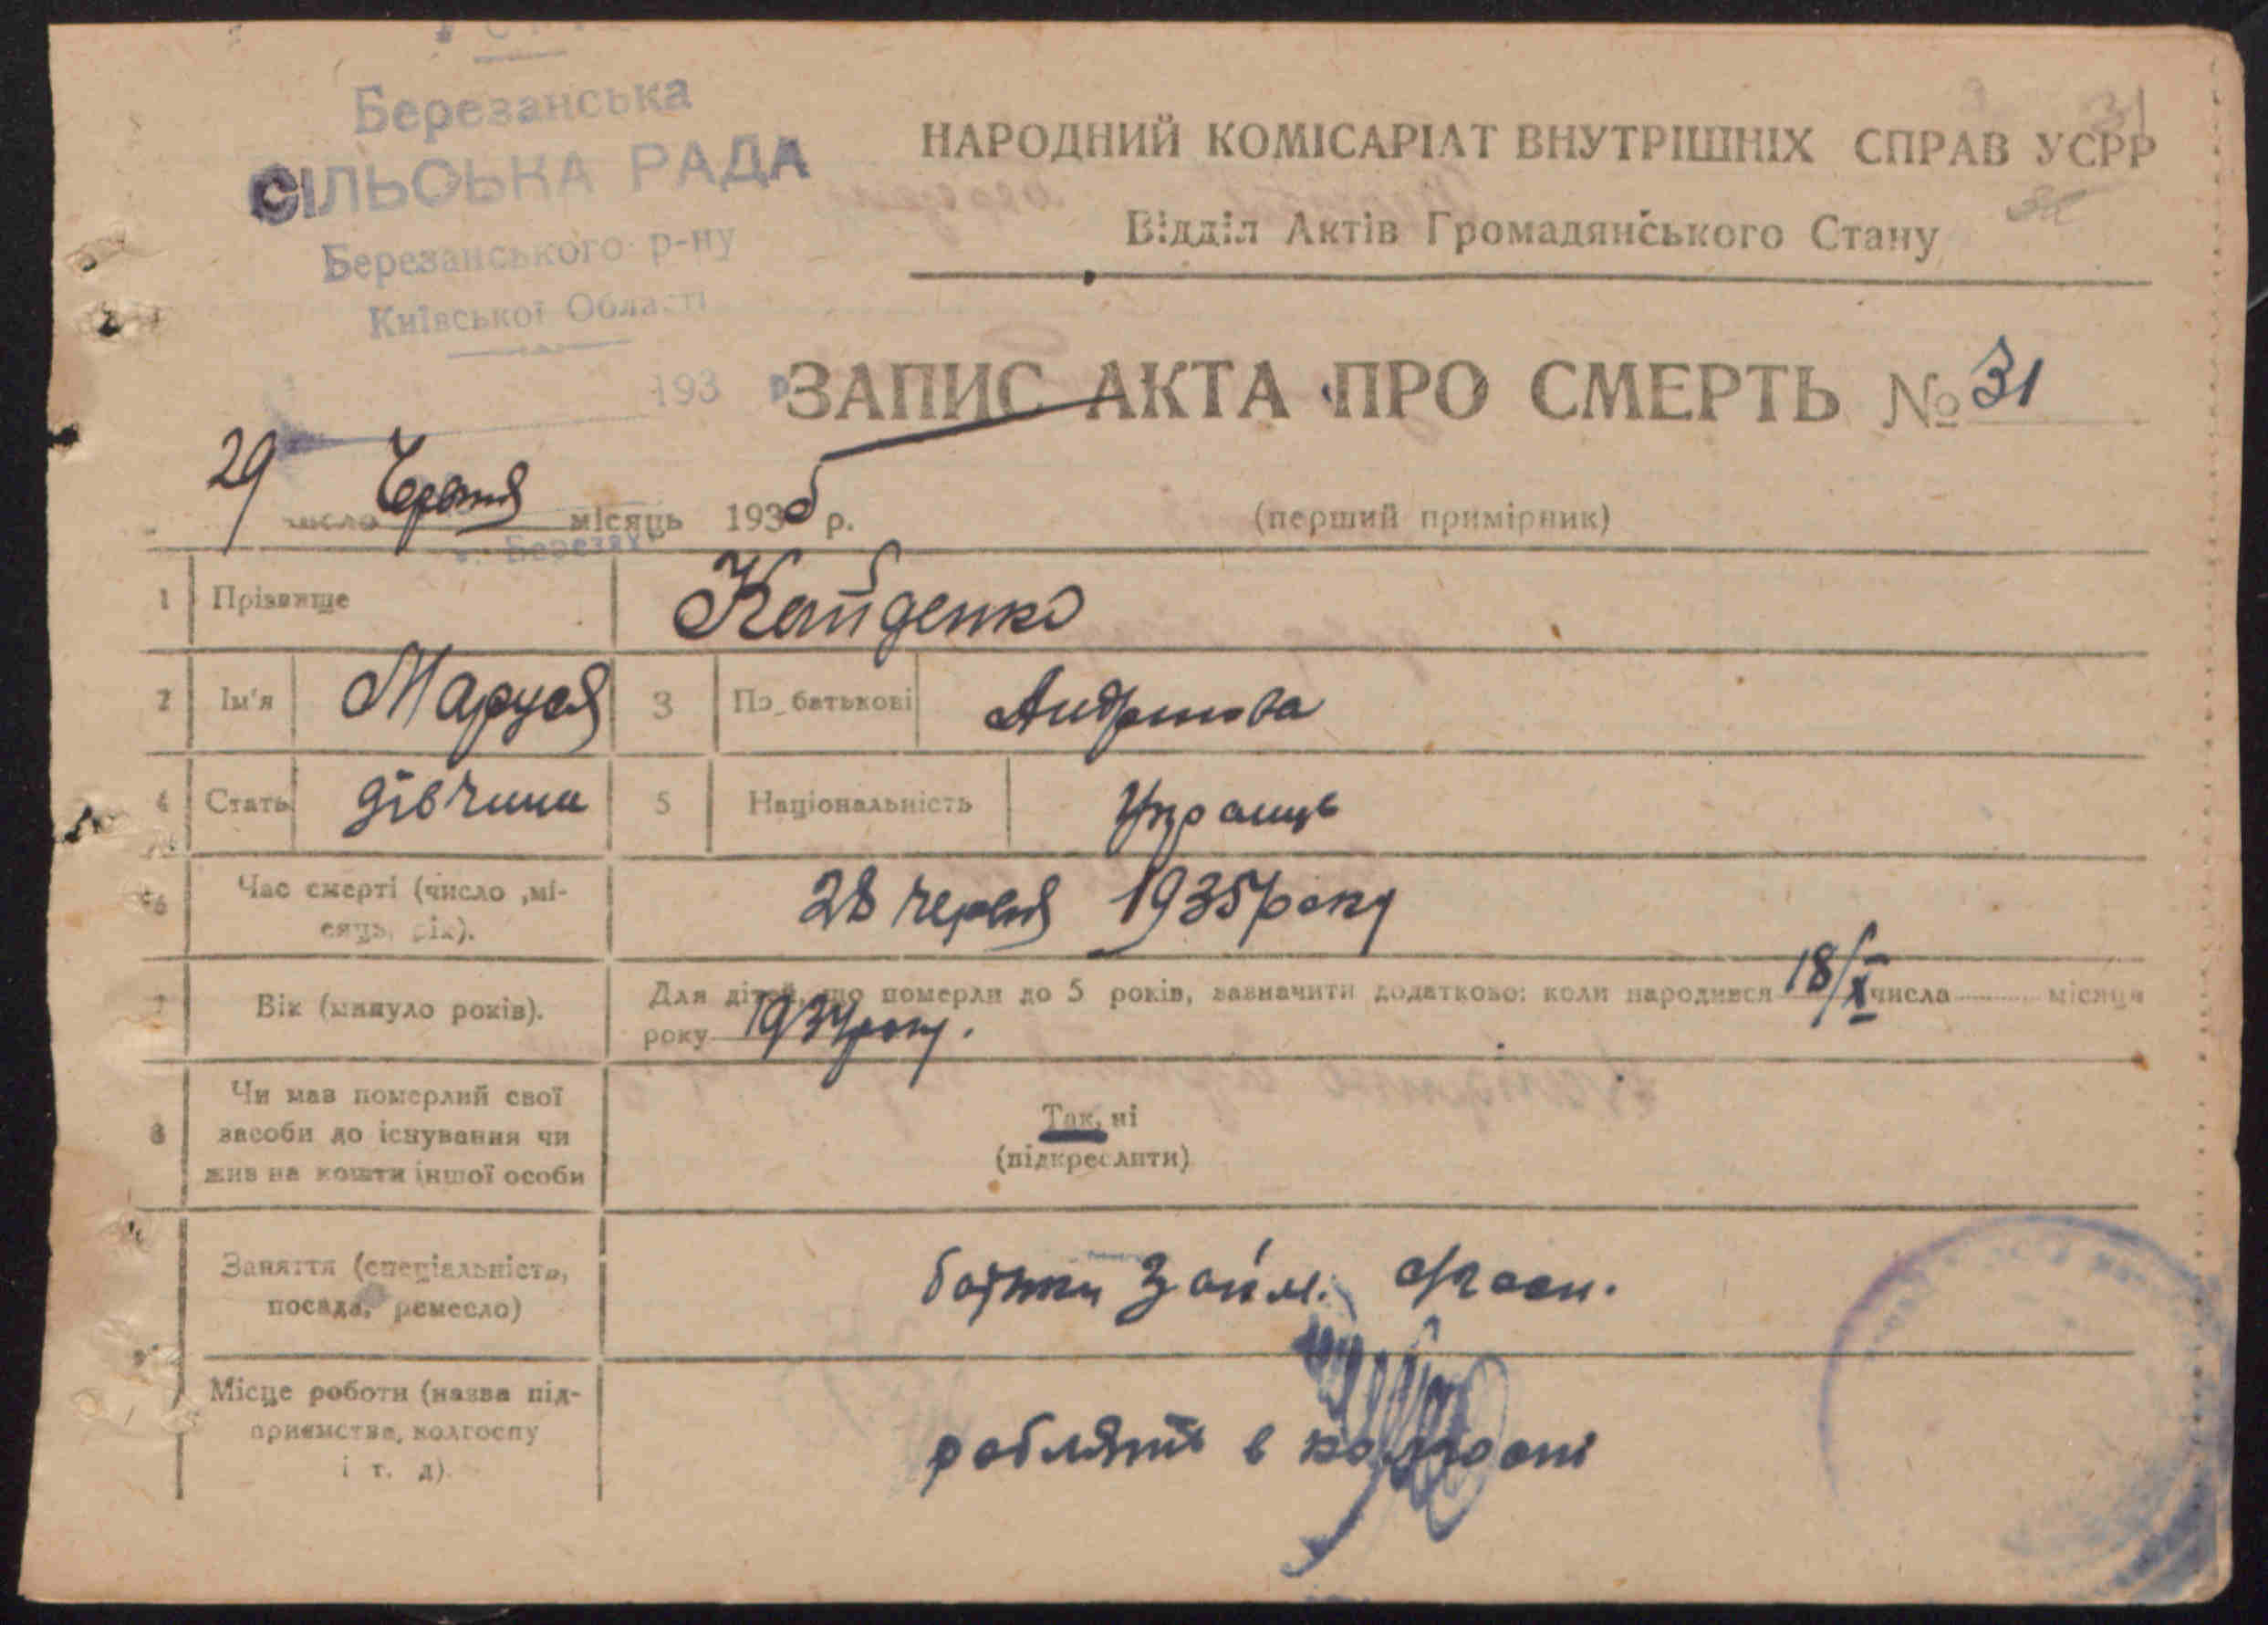 Березанська
СІЛЬСЬКА РАДА
Березанського р-ну
Київської Області
193 р
НАРОДНИЙ КОМІСАРІАТ ВНУТРІШНІХ СПРАВ УСРР
31
Відділ Актів Громадянського Стану
ЗАПИС АКТА ПРО СМЕРТЬ № 31
29 число Червня місяць 1935 р.
(перший примірник)
1 Прізвище Кайденко
2 Ім'я Маруся 3 По батькові Андріївна
4 Стать дівчина 5 Національність Українць
6 Час смерті (число, мі-
сяць, рік). 28 червня 1935 року
7 Вік (минуло років). Для дітей, що померли до 5 років, зазначити додатково: коли народився 18/X числа місяця
року 1934 року.
8 Чи мав померлий свої
засоби до існування чи
жив на кошти іншої особи
Так, ні
(підкреслити)
Заняття (спеціальність,
посада, ремесло)
батьки займ.
Місце роботи (назва під-
приємства, колгоспу
і т. д).
роблять в колгоспі